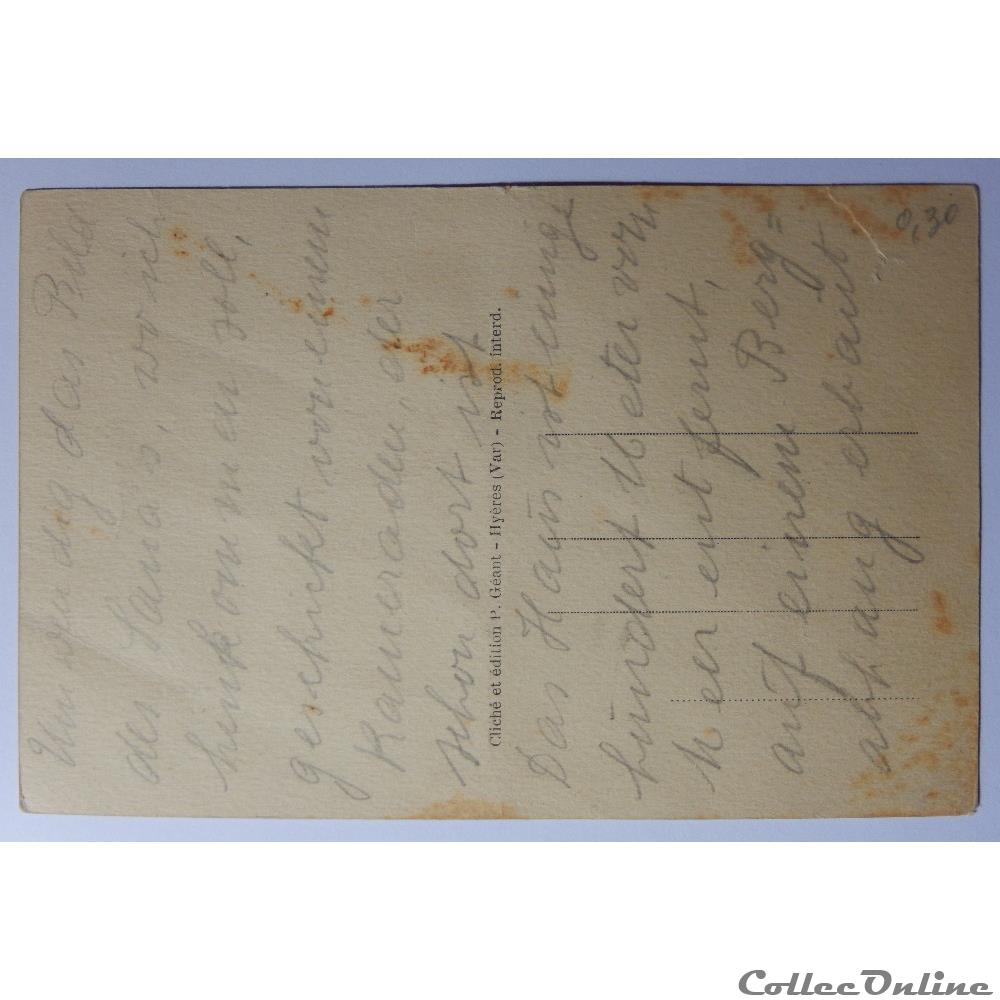 Umseitig das Bild
des Sana's, wo ich
hinkommen soll,
geschickt von einem
Kameraden, der
schon dort ist
Das Haus ist einige
hundert Meter vom
Meer entfernt,
auf einem Berg=
abhang erbaut.
Cliché et édition P. Géant - Hyères (Var) - Reprod. interd.
0,30
CollecOnline